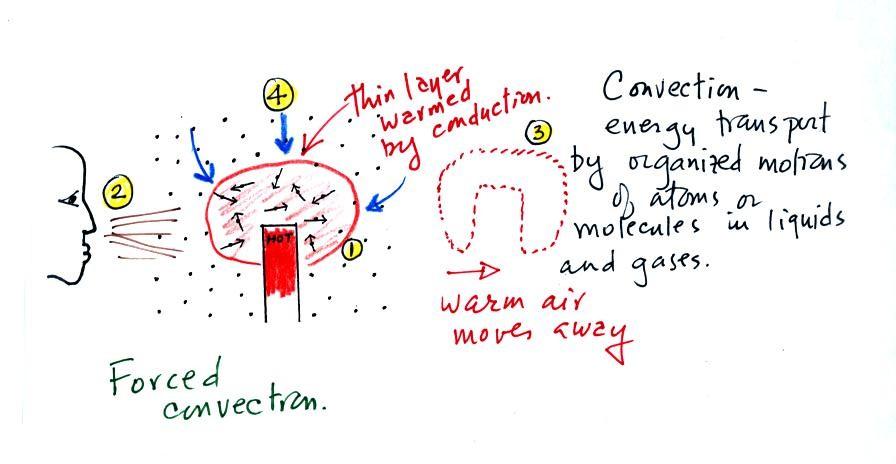 4
thin layer
warmed
by conduction.
2
HOT
1
3
warm air
moves away
Convection -
energy transport
by organized motions
of atoms or
molecules in liquids
and gases.
Forced
convection.